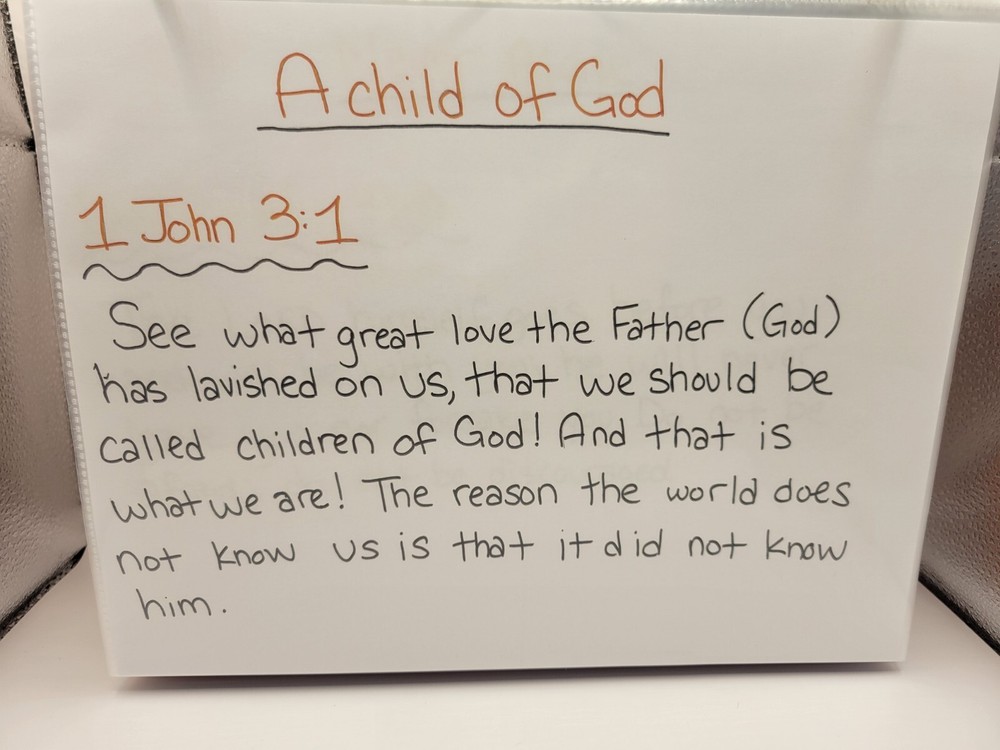 A child of God
1 John 3:1
See what great love the Father (God)
has lavished on us, that we should be
called children of God! And that is
what we are! The reason the world does
not know us is that it did not know
him.